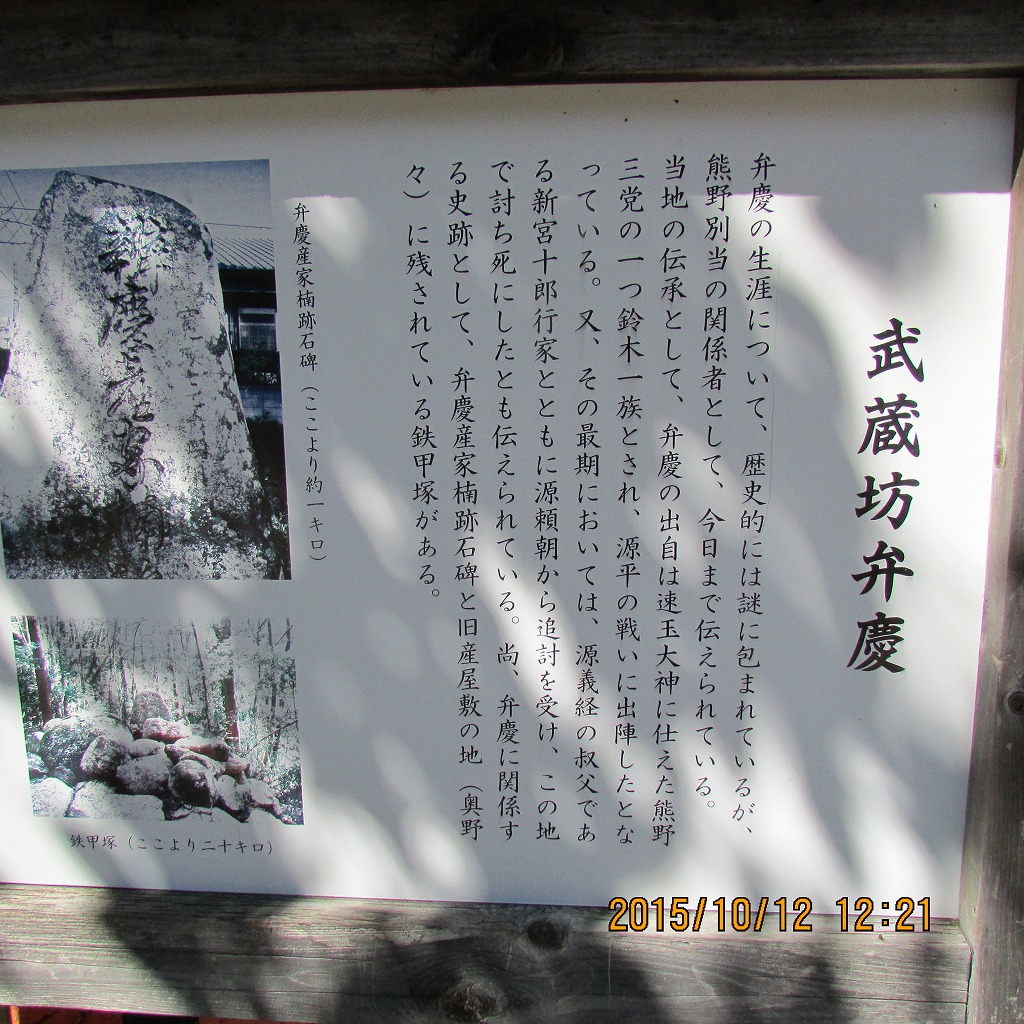 武蔵坊弁慶
弁慶の生涯について、歴史的には謎に包まれているが、
熊野別当の関係者として、今日まで伝えられている。
当地の伝承として、弁慶の出自は速玉大神に仕えた熊野
三党の一つ鈴木一族とされ、源平の戦いに出陣したとな
っている。又、その最期においては、源義経の叔父であ
る新宮十郎行家とともに源頼朝から追討を受け、この地
で討ち死にしたとも伝えられている。尚、弁慶に関係す
る史跡として、弁慶産家楠跡石碑と旧産屋敷の地（奥野
々）に残されている鉄甲塚がある。
弁慶産家楠跡石碑（ここより約一キロ）
鉄甲塚（ここより二十キロ）
2015/10/12 12:21